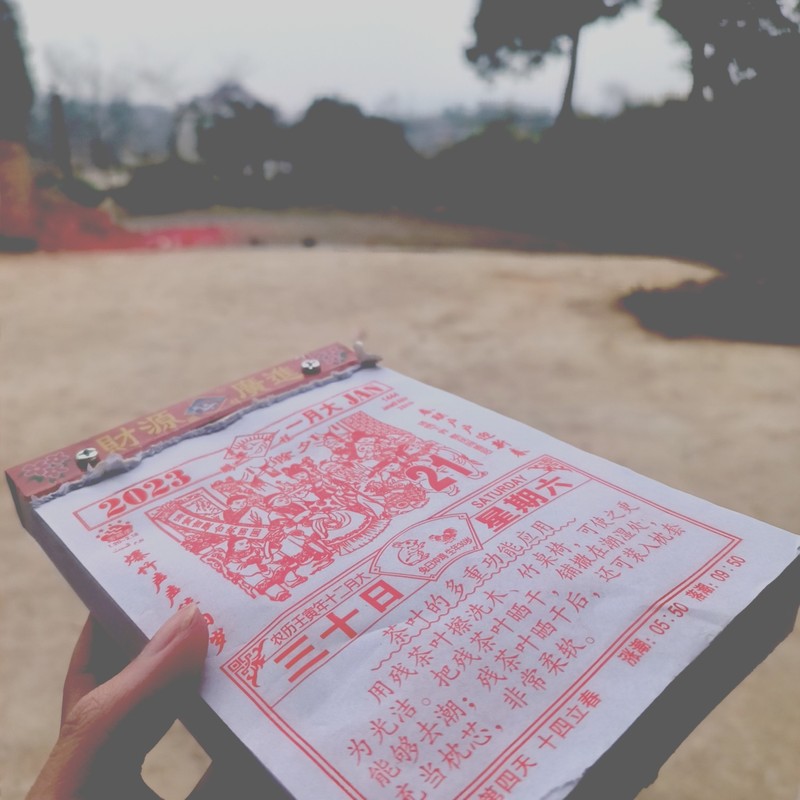 財源 廣進
2023
一月大 JAN
21
SATURDAY
星期六
爆竹声声
农历壬寅年十二月大
三十日
茶叶的多重功能应用
用残茶叶擦洗木、竹桌椅,可使之更
为光洁。把残茶叶晒干,铺撒在潮湿处,
能够去潮;残茶叶晒干后,还可装入枕套
充当枕芯,非常柔软。
第四天 十四立春
涨潮:05:50 落潮:09:50